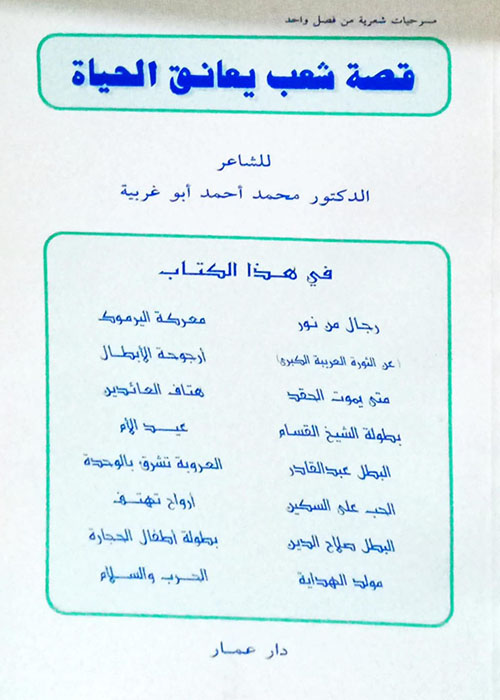 مسرحيات شعرية من فصل واحد
قصة شعب يعانق الحياة
للشاعر
الدكتور محمد أحمد أبو غربية
في هذا الكتاب
رجال من نور
(عن الثورة العربية الكبرى)
متى يموت الحقد
بطولة الشيخ القسام
البطل عبدالقادر
الحب على السكين
البطل صلاح الدين
مولد الهداية
معركة اليرموك
أرجوحة الأبطال
هتاف العائدين
عيد الأم
العروبة تشرق بالوحدة
أرواح تهتف
بطولة أطفال الحجارة
الحرب والسلام
دار عمار